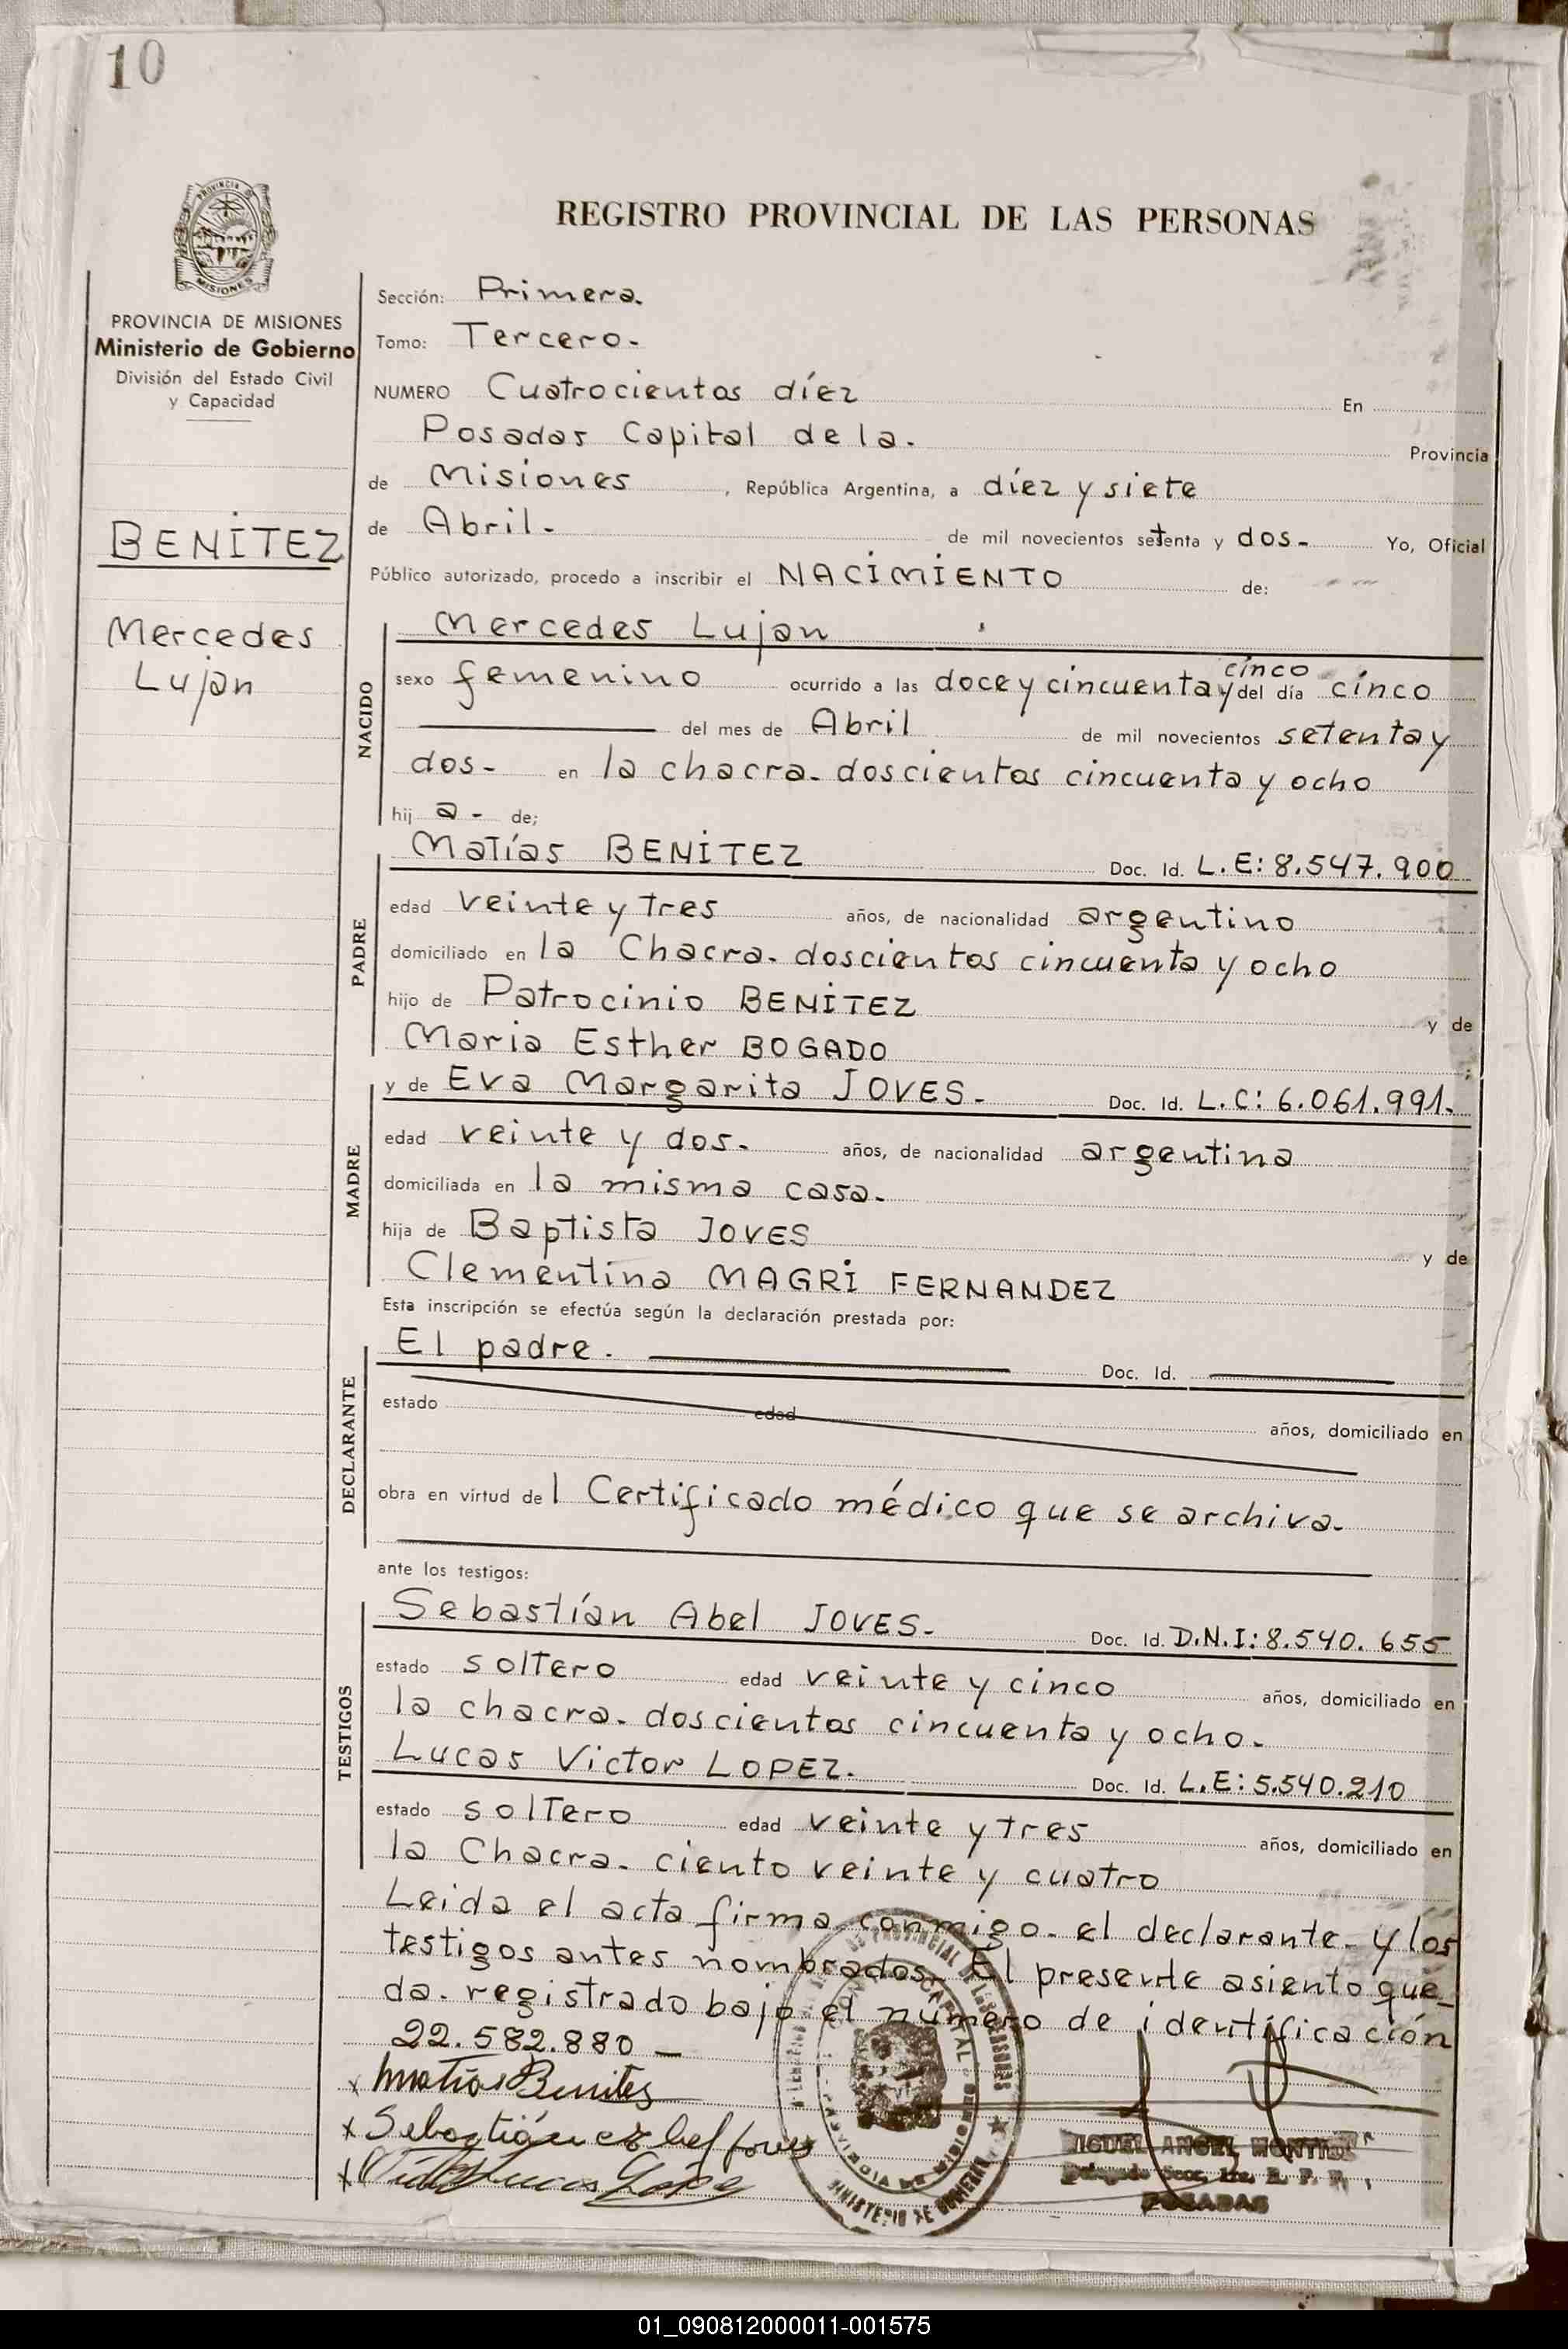 10
PROVINCIA DE
MISIONES
REGISTRO PROVINCIAL DE LAS PERSONAS
PROVINCIA DE MISIONES
Ministerio de Gobierno
División del Estado Civil
y Capacidad
BENITEZ
Mercedes
Lujan
Sección: Primera.
Tomo: Tercero.
NUMERO Cuatrocientos díez En
Posadas Capital de la. Provincia
de Misiones, República Argentina, a díez y siete
de Abril. de mil novecientos setenta y dos. Yo, Oficial
Público autorizado, procedo a inscribir el NACIMIENTO de:
NACIDO
Mercedes Lujan
cinco
sexo femenino ocurrido a las doce y cincuenta y del día cinco
del mes de Abril de mil novecientos setenta y
dos. en la chacra. doscientos cincuenta y ocho
hij a. de;
PADRE
Matías BENITEZ Doc. Id. L.E: 8.547.900
edad veinte y tres años, de nacionalidad argentino
domiciliado en la Chacra. doscientos cincuenta y ocho
hijo de Patrocinio BENITEZ y de
Maria Esther BOGADO ;
MADRE
y de Eva Margarita JOVES. Doc. Id. L.C: 6.061.991.
edad veinte y dos. años, de nacionalidad argentina
domiciliada en la misma casa.
hija de Baptista JOVES y de
Clementina MAGRI FERNANDEZ
Esta inscripción se efectúa según la declaración prestada por:
DECLARANTE
El padre. Doc. Id.
estado edad años, domiciliado en
obra en virtud de l Certificado médico que se archiva.
ante los testigos:
TESTIGOS
Sebastían Abel JOVES. Doc. Id. D.N.I: 8.540.655
estado soltero edad veinte y cinco años, domiciliado en
la chacra. doscientos cincuenta y ocho.
Lucas Victor LOPEZ. Doc. Id. L.E: 5.540.210
estado soltero edad veinte y tres años, domiciliado en
la Chacra. ciento veinte y cuatro
Leida el acta firma conmigo. el declarante. y los
testigos antes nombrados. El presente asiento que_
da. registrado bajo el número de identificación
22.582.880 —
x Matías Benites
x Sebastián Abel Joves
x Lucas López
PROVINCIAL DE LAS PERSONAS
CAPITAL
PROVINCIA DE MISIONES
MINISTERIO DE GOBIERNO
MIGUEL ANGEL
POSADAS
01_090812000011-001575